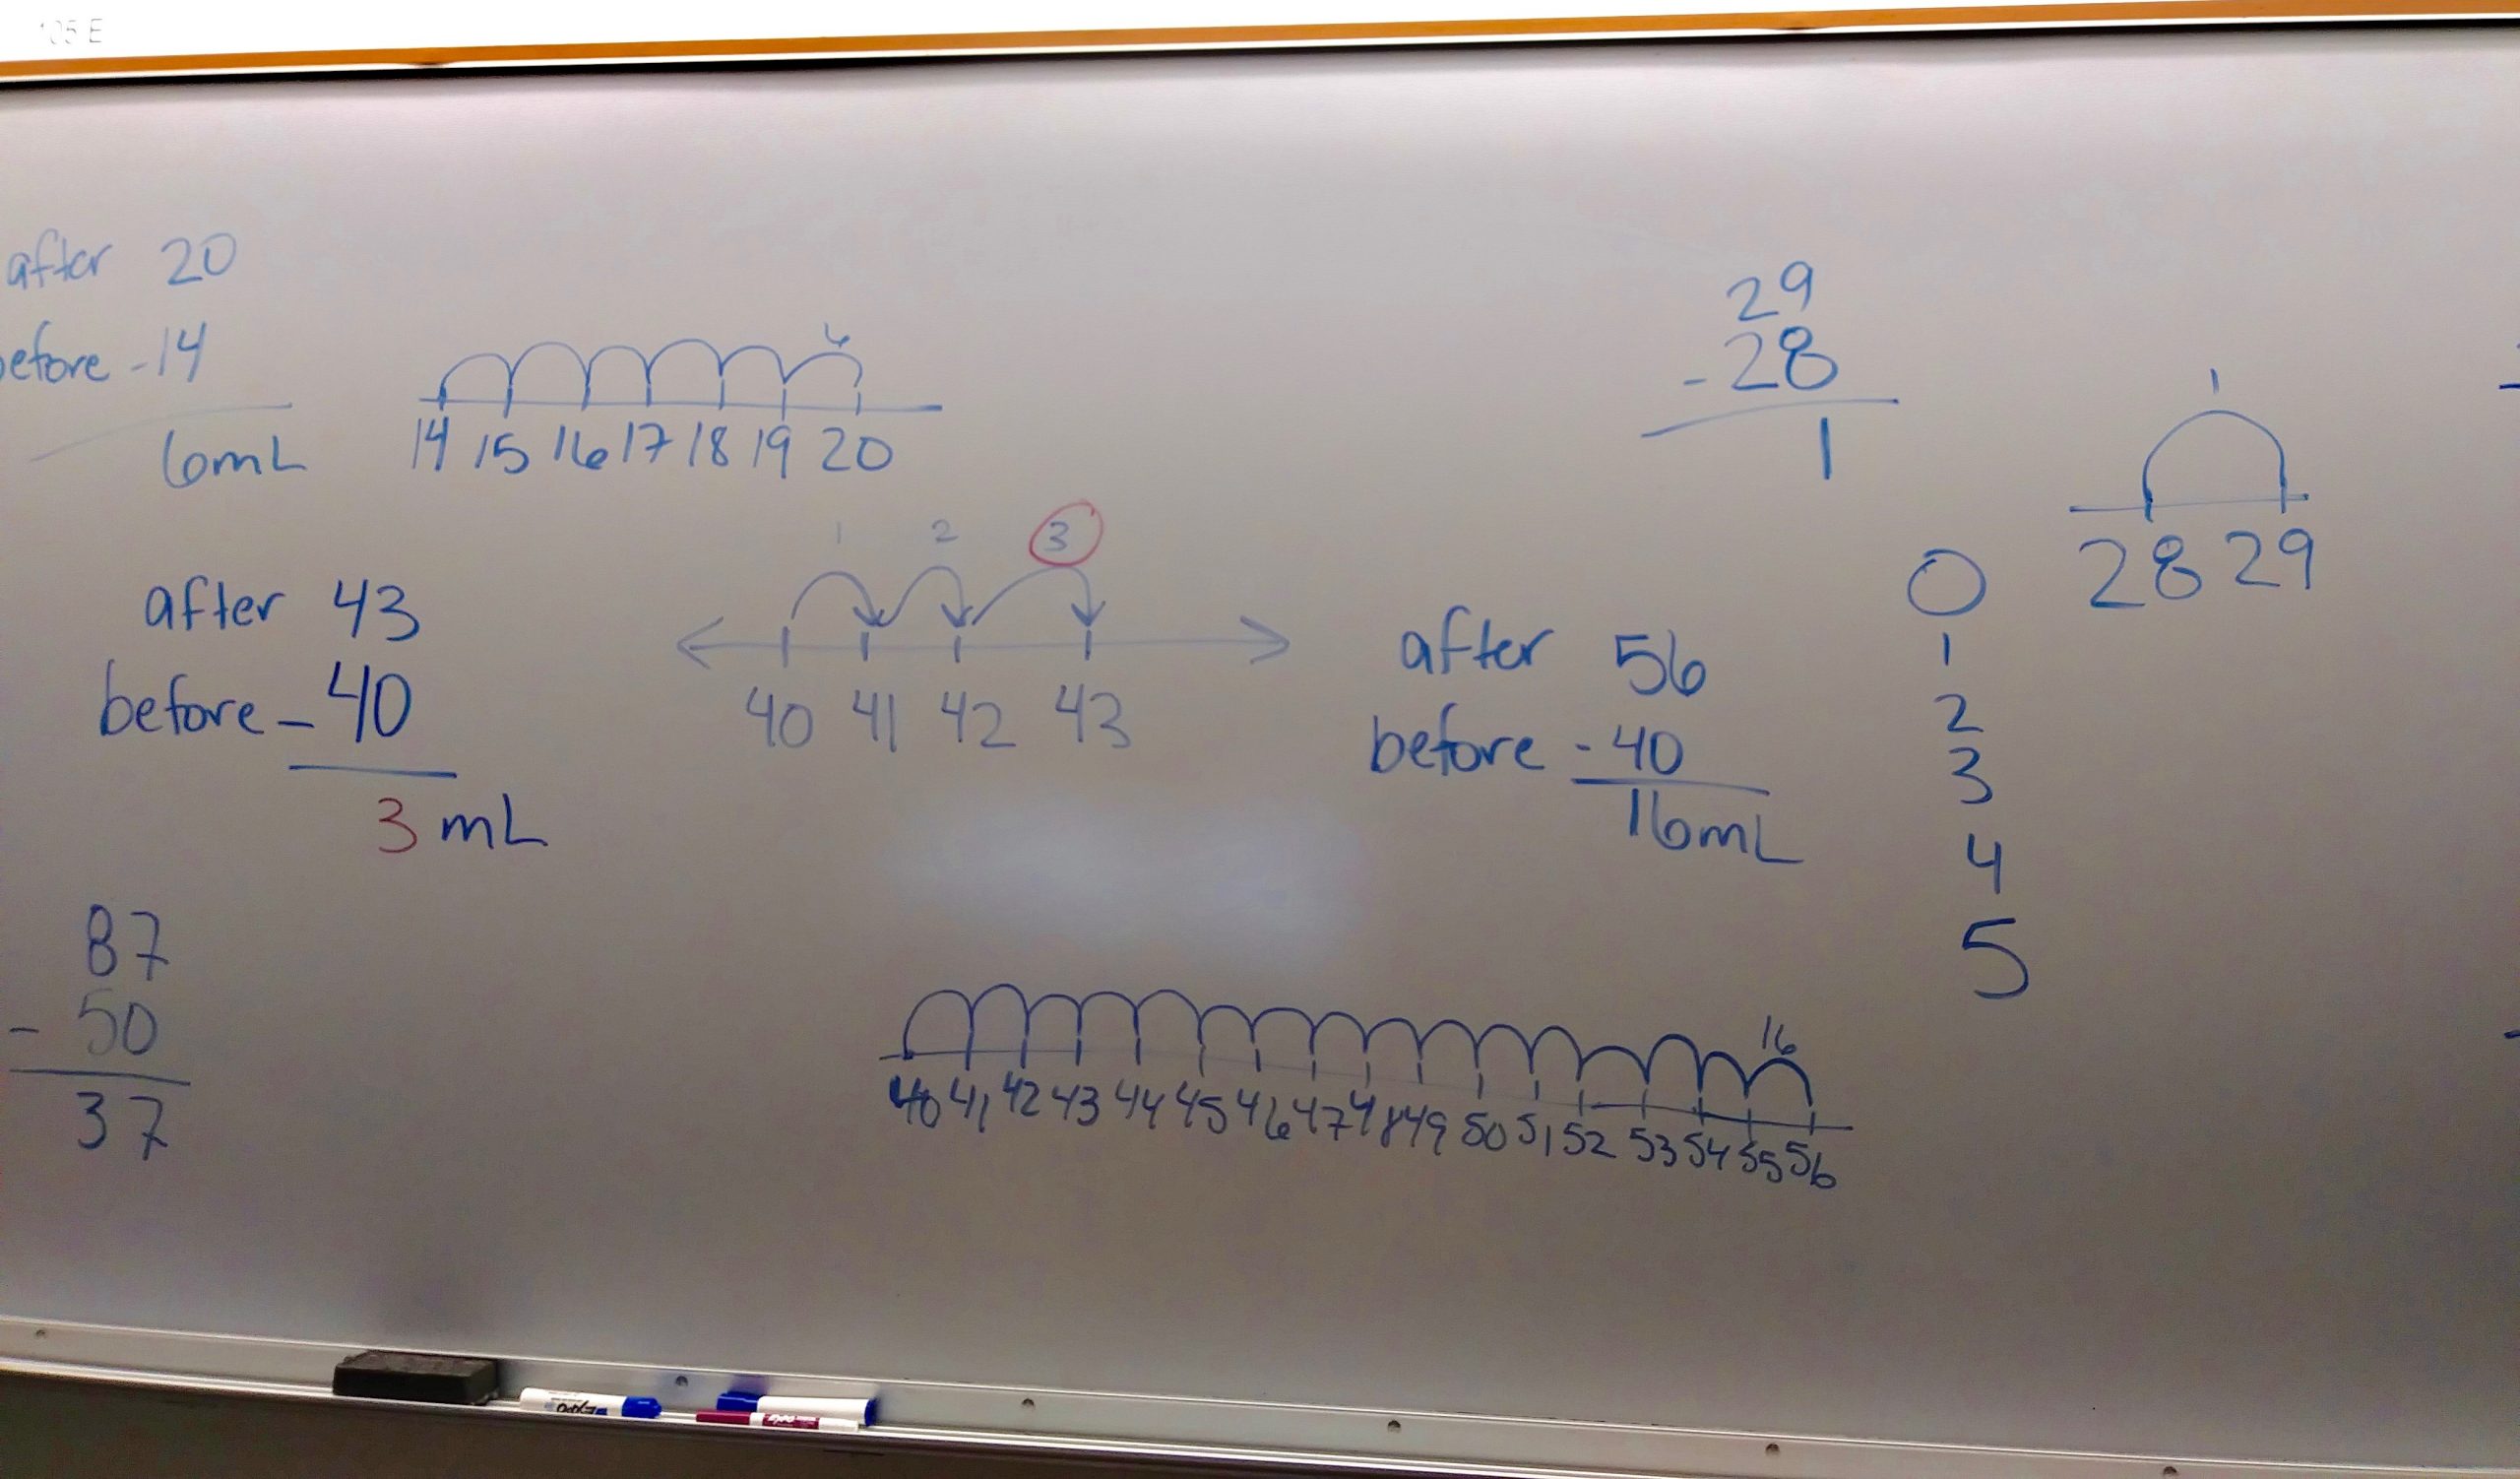 105 E
after 20
before - 14
6mL
6
14 15 16 17 18 19 20
29
- 28
1
1
28 29
after 43
before - 40
3 mL
1 2 3
40 41 42 43
after 56
before - 40
16mL
0
1
2
3
4
5
87
- 50
37
16
40 41 42 43 44 45 46 47 48 49 50 51 52 53 54 55 56
EXPO
EXPO